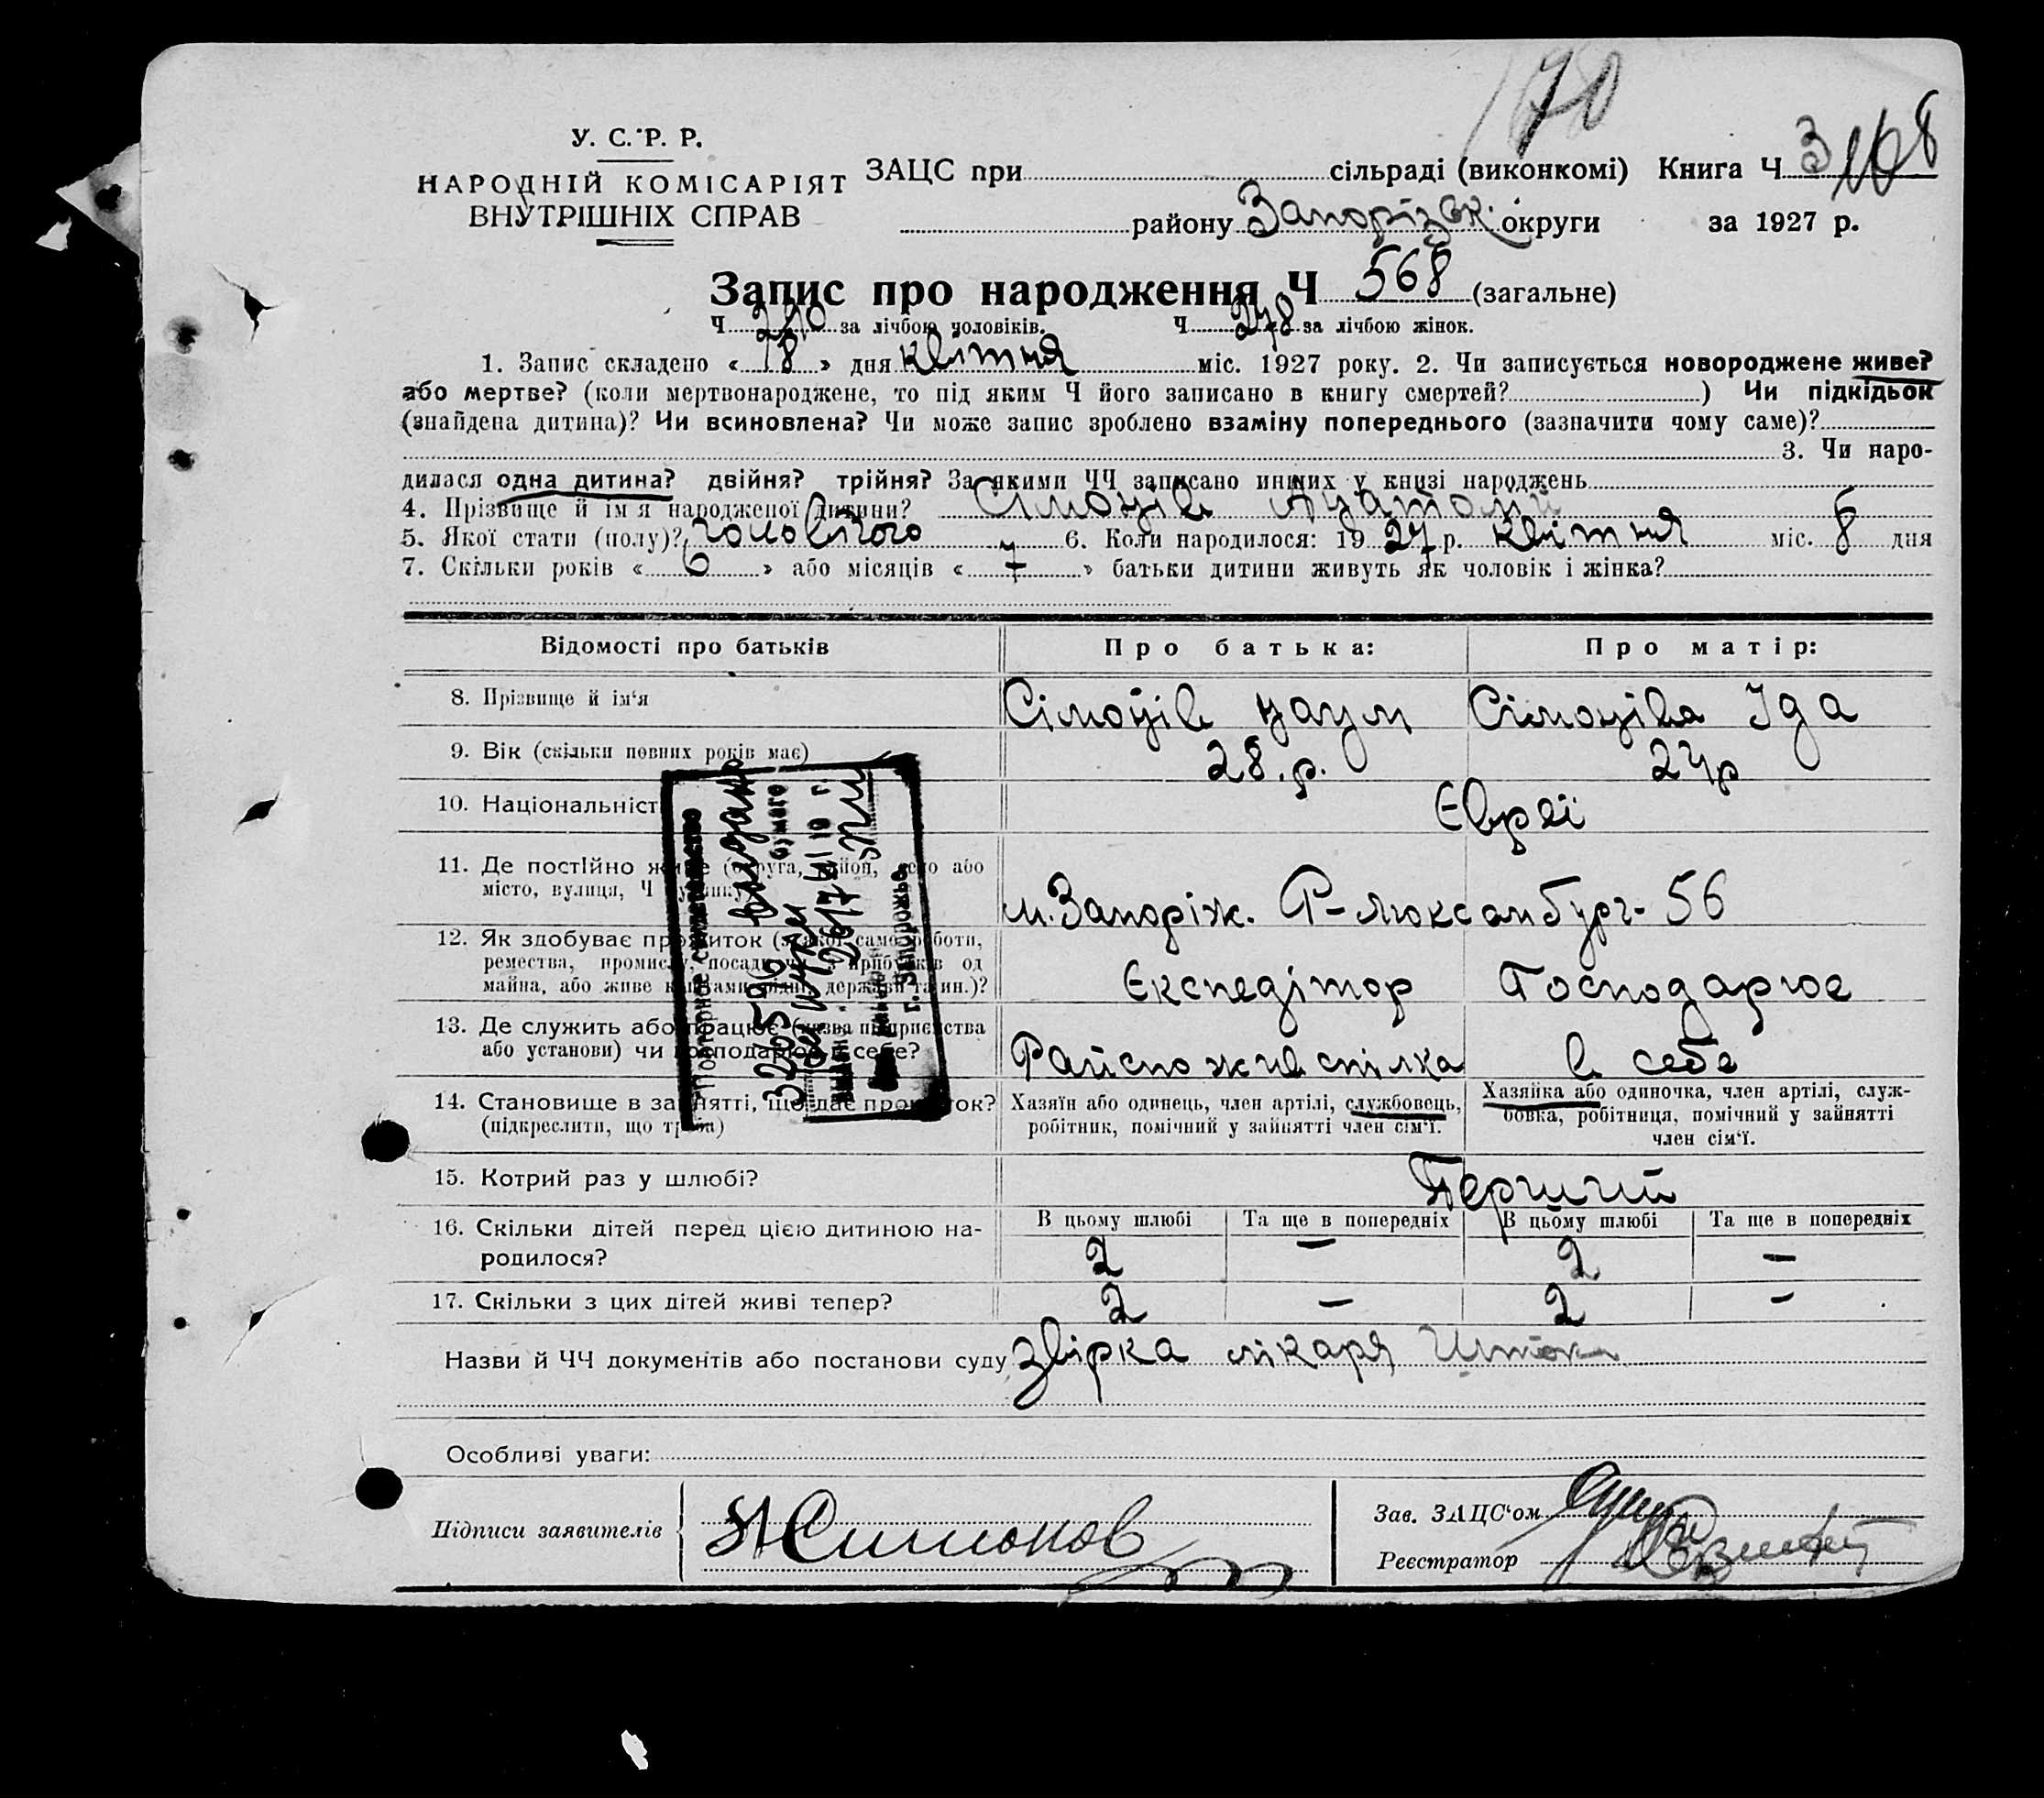 170
У. С. Р. Р.
НАРОДНІЙ КОМІСАРІЯТ
ВНУТРІШНІХ СПРАВ
ЗАЦС при сільраді (виконкомі) Книга Ч 3
району Запорізьк. округи за 1927 р.
Запис про народження Ч 568 (загальне)
Ч 290 за лічбою чоловіків. Ч 278 за лічбою жінок.
1. Запис складено « 18 » дня квітня міс. 1927 року. 2. Чи записується новороджене живе?
або мертве? (коли мертвонароджене, то під яким Ч його записано в книгу смертей? ) Чи підкідьок
(знайдена дитина)? Чи всиновлена? Чи може запис зроблено взаміну попереднього (зазначити чому саме)?
3. Чи наро-
дилася одна дитина? двійня? трійня? За якими ЧЧ записано инших у книзі народжень
4. Прізвище й ім'я народженої дитини? Сімонів Анатолій
5. Якої стати (полу)? чоловічого 6. Коли народилося: 19 27 р. квітня міс. 6 дня
7. Скільки років « 6 » або місяців « 7 » батьки дитини живуть як чоловік і жінка?
Відомості про батьків Про батька: Про матір:
8. Прізвище й ім'я Сімонів Наум Сімоніва Іда
9. Вік (скільки повних років має) 28.р. 24р
10. Національність Євреї
11. Де постійно живе (округа, район, село або
місто, вулиця, Ч будинку)
м. Запоріж. Р-Люксамбург- 56
12. Як здобуває прожиток (з якої само роботи,
ремества, промислу, посади, чи з прибутків од
майна, або живе коштами рідні, держави та ин.)?
Експедітор Господарює
13. Де служить або працює (назва підприємства
або установи) чи господарює в себе?
Райспоживспілка в себе
14. Становище в зайнятті, що дає прожиток?
(підкреслити, що треба)
Хазяїн або одинець, член артілі, службовець,
робітник, помічний у зайнятті член сім'ї.
Хазяйка або одиночка, член артілі, служ-
бовка, робітниця, помічний у зайнятті
член сім'ї.
15. Котрий раз у шлюбі? Перший
16. Скільки дітей перед цією дитиною на-
родилося?
В цьому шлюбі Та ще в попередніх В цьому шлюбі Та ще в попередніх
2 – 2 –
17. Скільки з цих дітей живі тепер? 2 – 2 –
Назви й ЧЧ документів або постанови суду звірка лікаря
Особливі уваги:
Підписи заявителів Н Симонов
Зав. ЗАЦС'ом
Реєстратор
Повторное свидетельство
выдано
326596
г. Запорожье